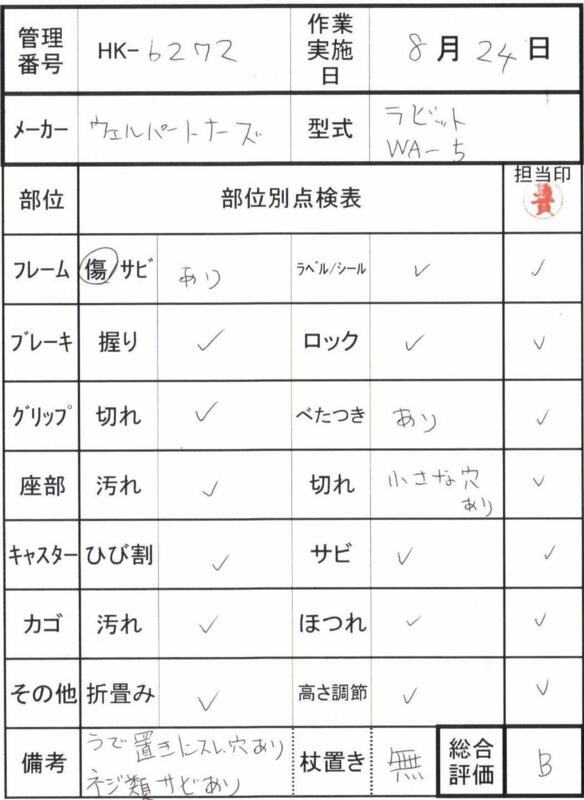 管理番号 HK-6272 作業実施日 8月24日
メーカー ウェルパートナーズ 型式 ラビット WA-5
部位 部位別点検表 担当印
フレーム 傷/サビ あり ラベル/シール ✓ ✓
ブレーキ 握り ✓ ロック ✓ ✓
グリップ 切れ ✓ べたつき あり ✓
座部 汚れ ✓ 切れ 小さな穴あり ✓
キャスター ひび割 ✓ サビ ✓ ✓
カゴ 汚れ ✓ ほつれ ✓ ✓
その他 折畳み ✓ 高さ調節 ✓ ✓
備考 うで置きにスレ穴あり ネジ類サビあり 杖置き 無 総合評価 B